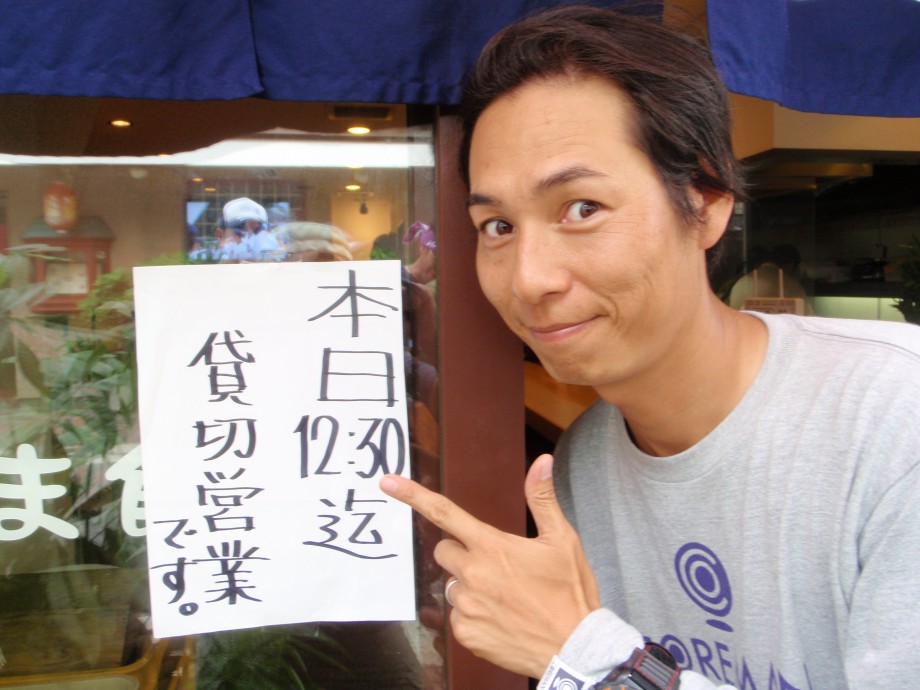 本日12:30迄
貸切営業
です。
ま食